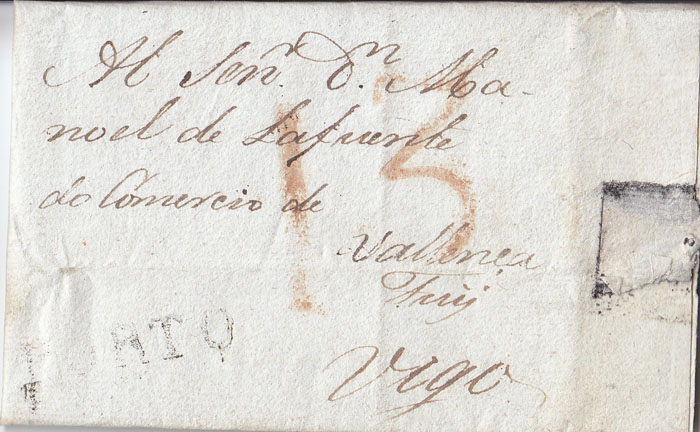 Al Señr. Dn. Ma-
noel de Lafuente
do Comercio de
Vallença
Tuij
Vigo
13